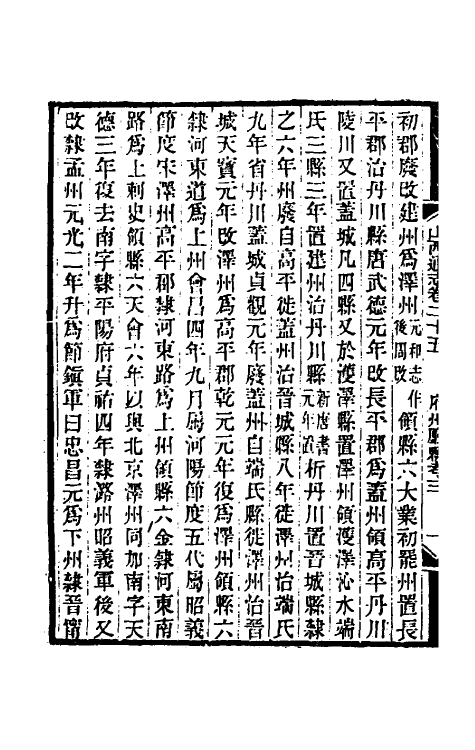 山西通志卷二十五
府州廳縣考三
一
初郡廢改建州爲澤州元和志作後周改領縣六大業初罷州置長
平郡治丹川縣唐武德元年改長平郡爲蓋州領高平丹川
陵川又置蓋城凡四縣又於濩澤縣置澤州領濩澤沁水端
氏三縣三年置建州治丹川縣新唐書元年置析丹川置晉城縣隸
之六年州廢自高平徙蓋州治晉城縣八年徙澤州治端氏
九年省丹川蓋城貞觀元年廢蓋州自端氏縣徙澤州治晉
城天寶元年改澤州爲高平郡乾元元年復爲澤州領縣六
隸河東道爲上州會昌四年九月屬河陽節度五代屬昭義
節度宋澤州高平郡隸河東路爲上州領縣六金隸河東南
路爲上刺史領縣六天會六年以與北京澤州同加南字天
德三年復去南字隸平陽府貞祐四年隸潞州昭義軍後又
改隸孟州元光二年升爲節鎮軍曰忠昌元爲下州隸晉甯